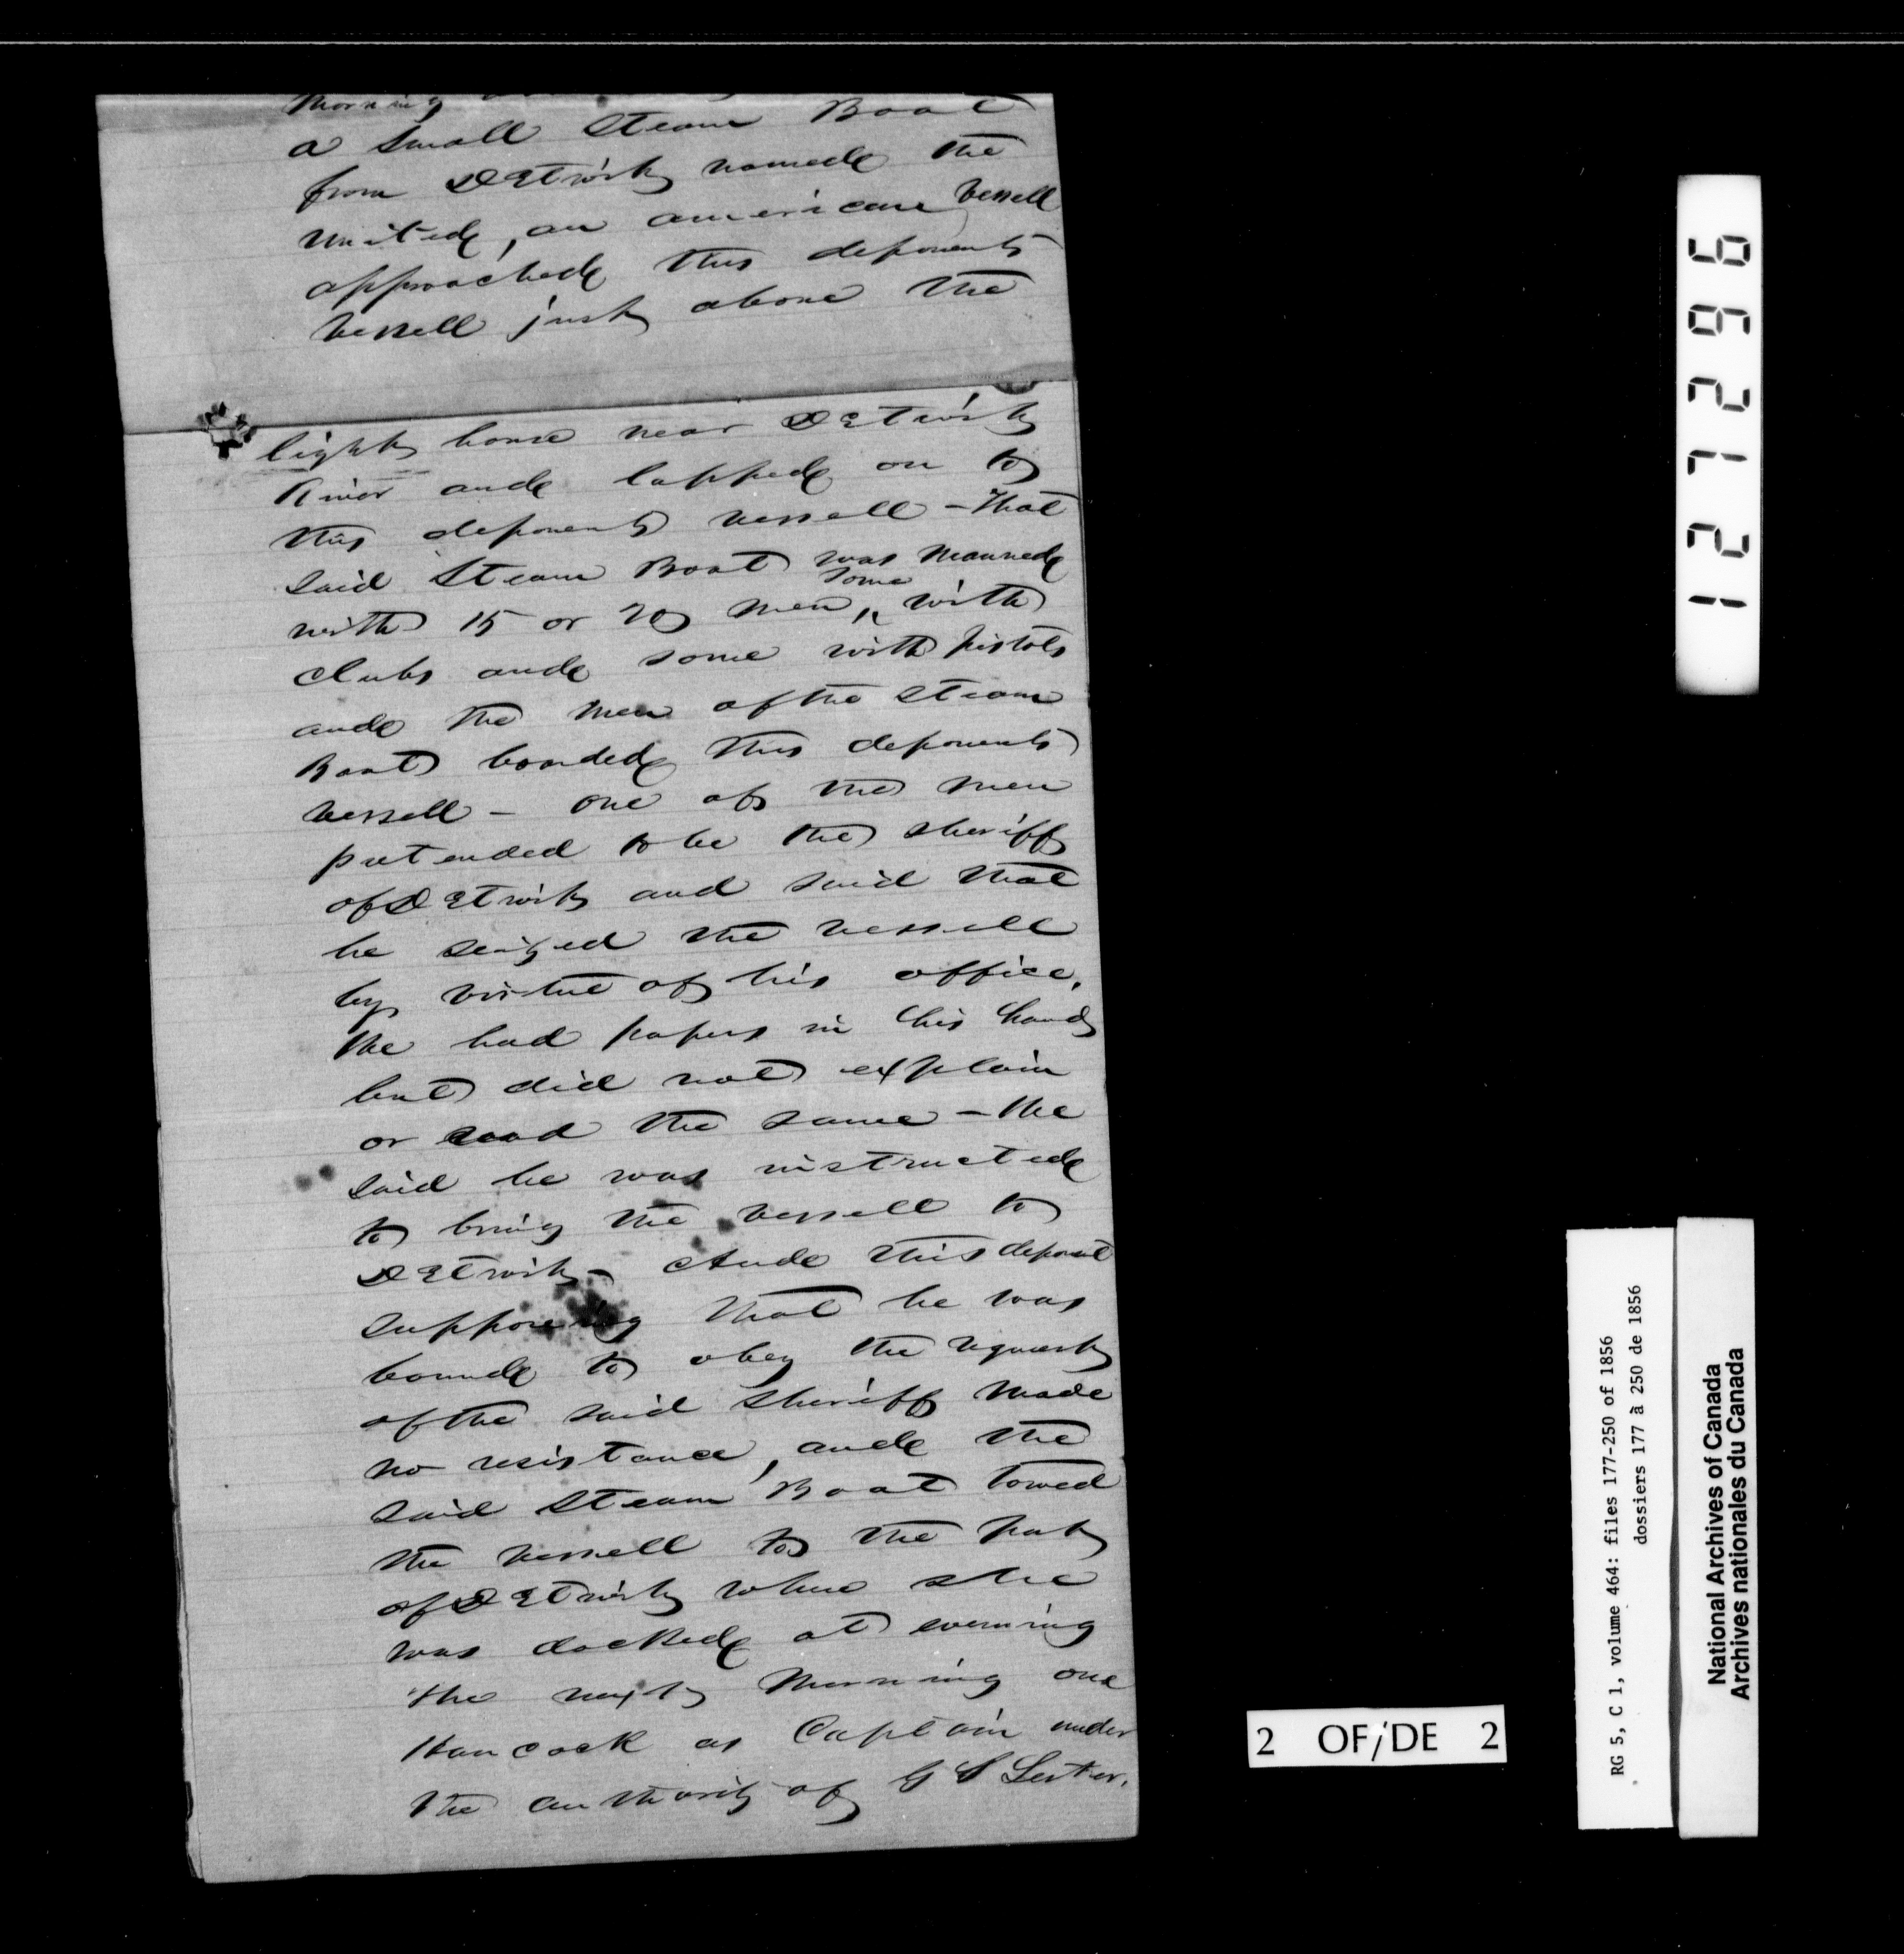 morning
a small Steam Boat
from Detroit named the
United, an american vessell
approached this deponents
vessell just above the
light house near Detroit
River and lapped on to
this deponents vessell - That
said Steam Boat was manned
with 15 or 20 men, some with
clubs and some with pistols
and the men of the steam
Boat boarded this deponents
vessell - one of the men
pretended to be the sheriff
of Detroit and said that
he seized the vessell
by virtue of his office,
He had papers in his hand
but did not explain
or read the same - He
said he was instructed
to bring the vessell to
Detroit - And this deponent
supposing that he was
bound to obey the request
of the said sheriff made
no resistance, and the
said Steam Boat towed
the vessell to the port
of Detroit where she
was docked at evening
the next morning one
Hancock as Captain under
the authority of G S Lester.
127296
2 OF/DE 2
RG 5, C 1, volume 464: files 177-250 of 1856
dossiers 177 à 250 de 1856
National Archives of Canada
Archives nationales du Canada